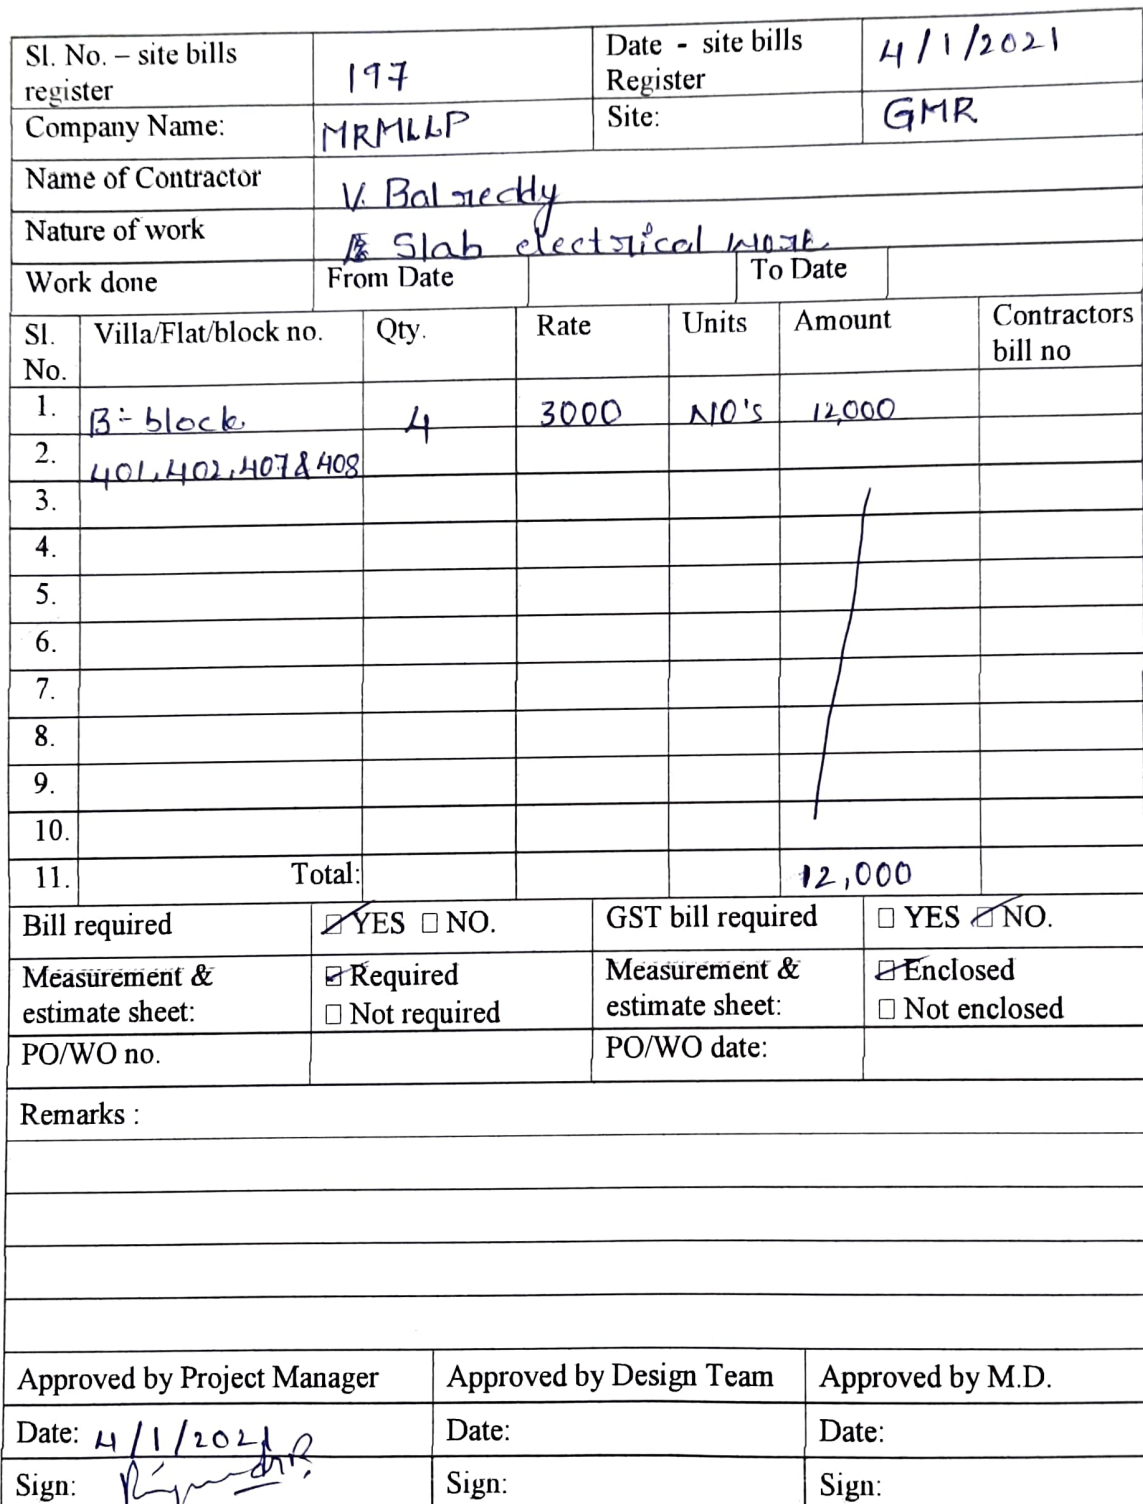 Sl. No. – site bills register 197 Date - site bills Register 4/1/2021
Company Name: MRMLLP Site: GMR
Name of Contractor V. Balreddy
Nature of work Slab electrical work
Work done From Date To Date
Sl. No. Villa/Flat/block no. Qty. Rate Units Amount Contractors bill no
1. B- block 4 3000 NO's 12,000
2. 401, 402, 407 & 408
3.
4.
5.
6.
7.
8.
9.
10.
11. Total: 12,000
Bill required ☑ YES ☐ NO. GST bill required ☐ YES ☑ NO.
Measurement & estimate sheet: ☑ Required ☐ Not required Measurement & estimate sheet: ☑ Enclosed ☐ Not enclosed
PO/WO no. PO/WO date:
Remarks :
Approved by Project Manager Approved by Design Team Approved by M.D.
Date: 4/1/2021 Date: Date:
Sign: Sign: Sign: